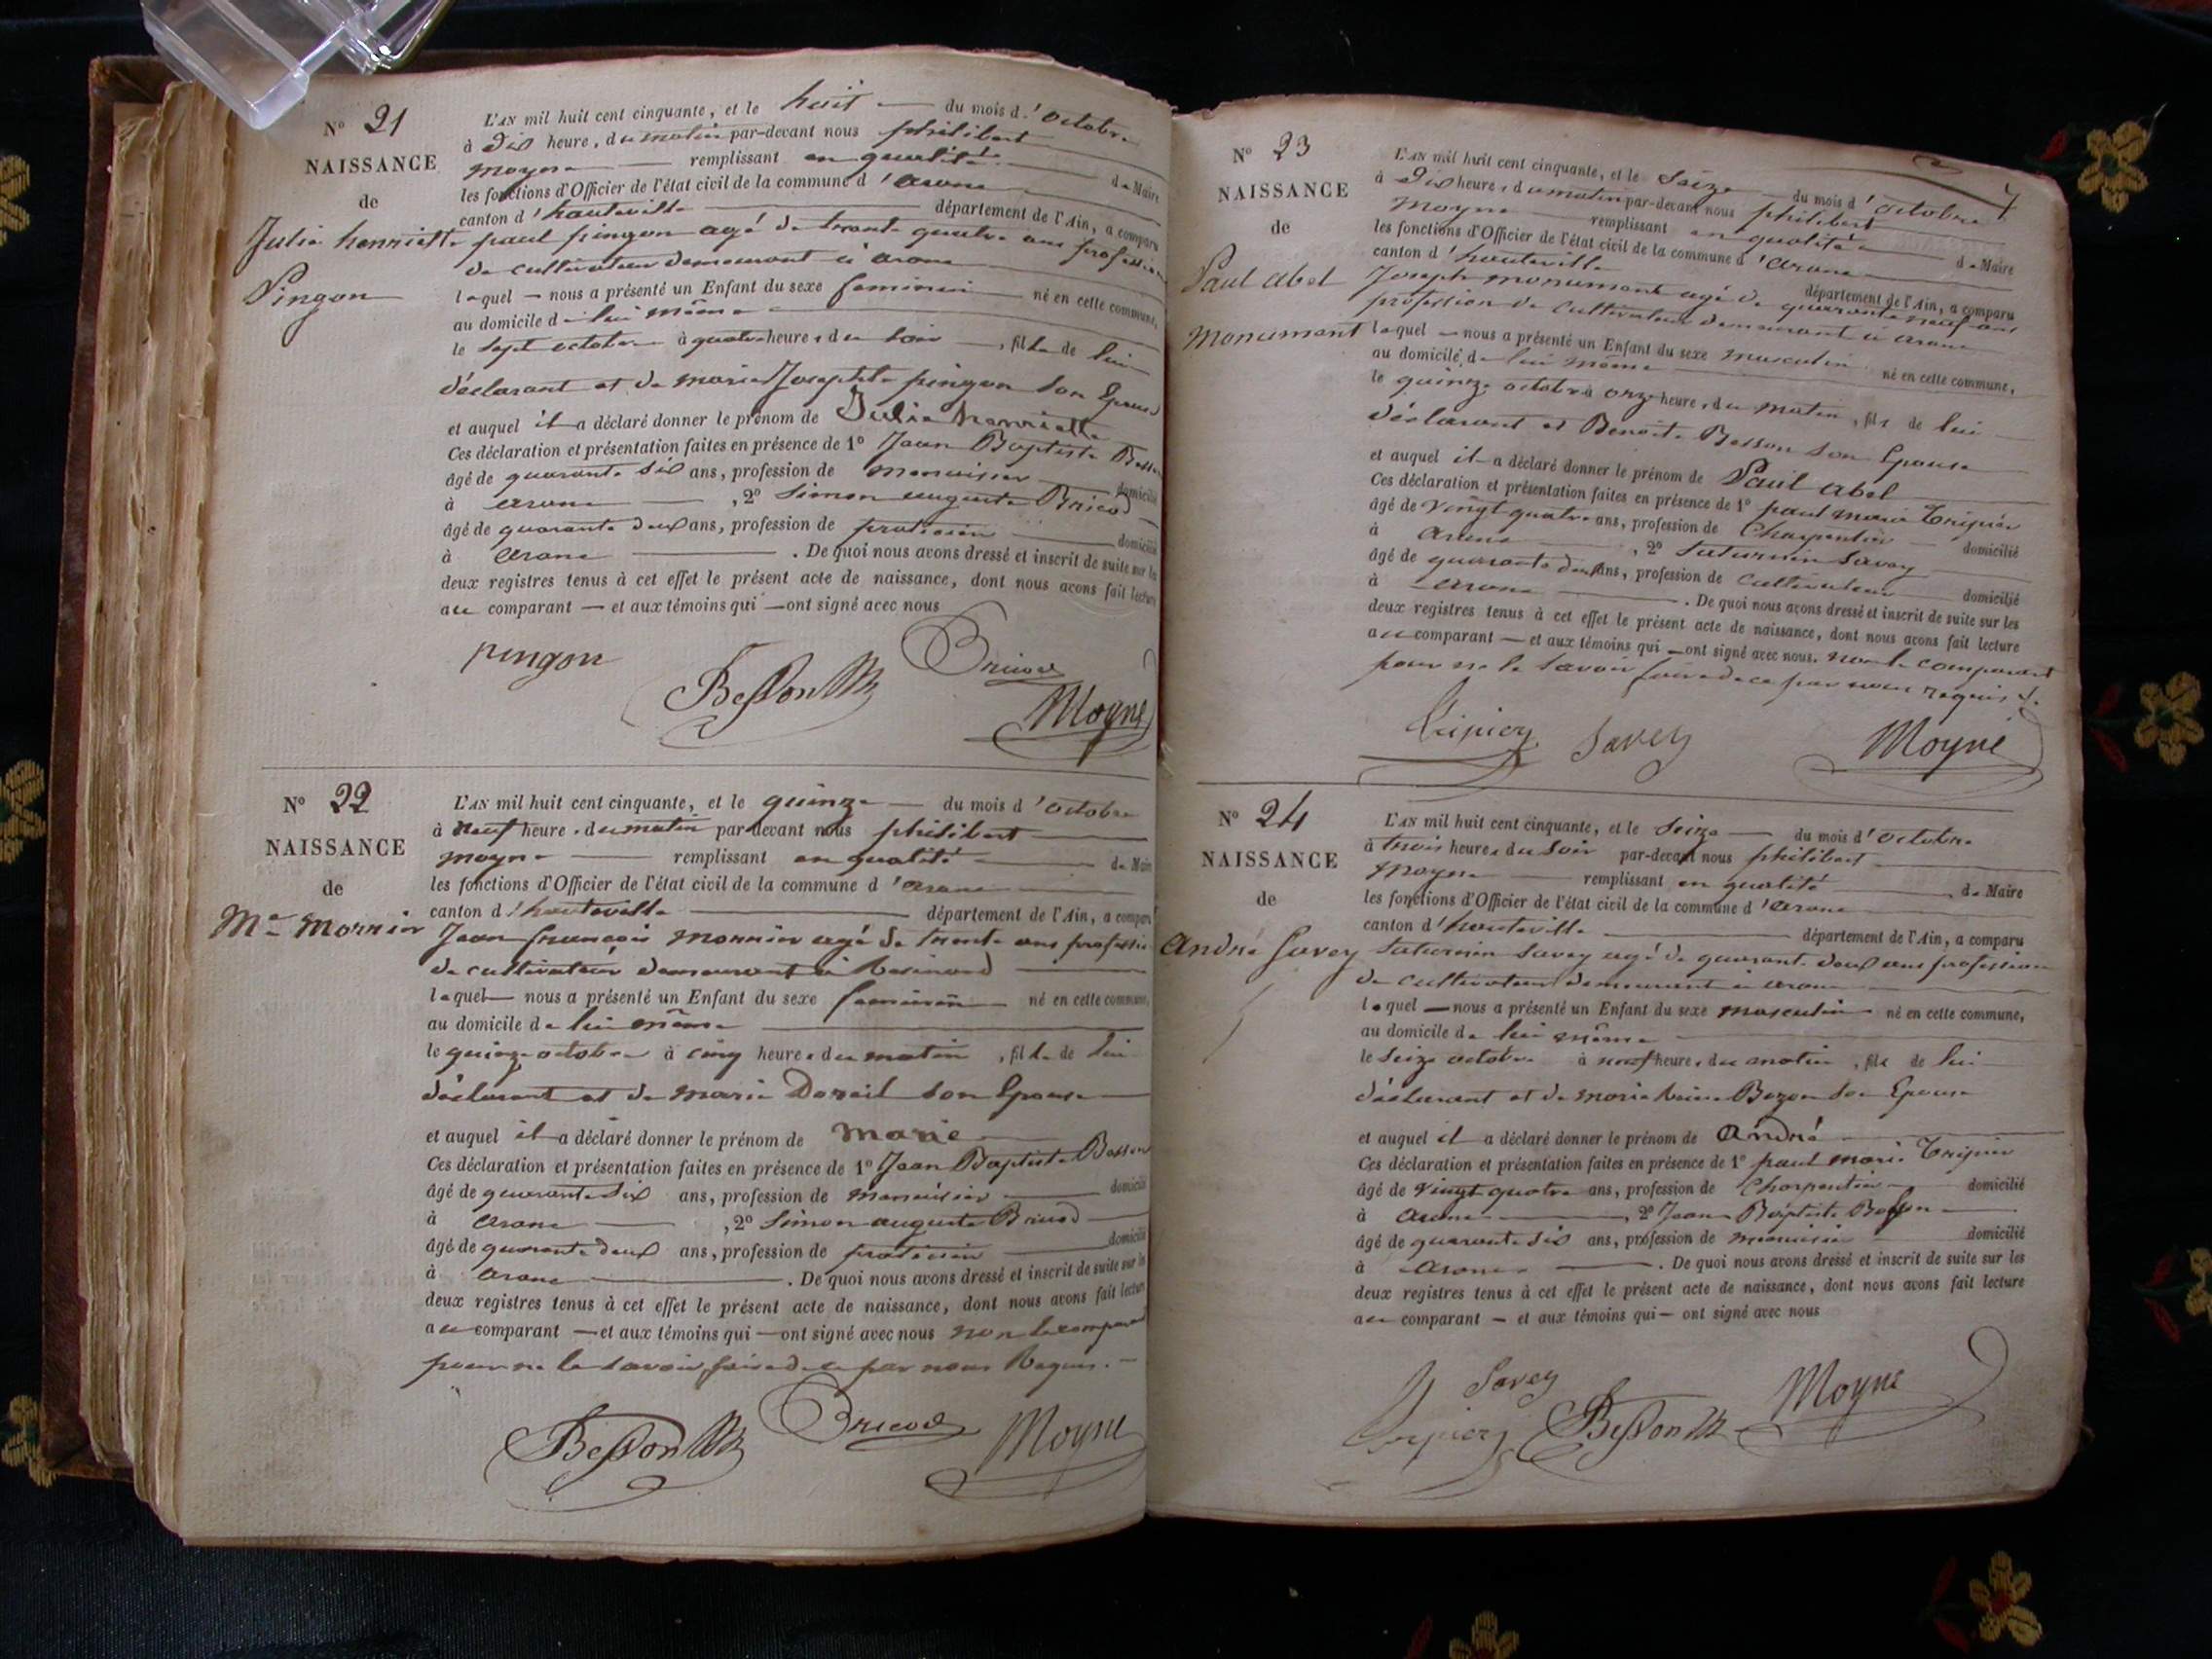 N° 21
NAISSANCE
de
Julie henriette
Pingon
L'AN mil huit cent cinquante, et le huit du mois d'octobre
à Dix heures du matin par-devant nous philibert
moyne remplissant en qualité de Maire
les fonctions d'Officier de l'état civil de la commune d'arane
canton d'hauteville département de l'Ain, a comparu
paul pingon agé de trente quatre ans profession
de cultivateur demeurant à arane
lequel nous a présenté un Enfant du sexe feminin né en cette commune,
au domicile de lui même
le sept octobre à quatre heures du soir, fille de lui
déclarant et de marie Josephte pingon son Epouse
et auquel il a déclaré donner le prénom de Julie henriette
Ces déclaration et présentation faites en présence de 1° Jean Baptiste Besson
âgé de quarante six ans, profession de menuisier domicilié
à arane, 2° Simon auguste Bricod
âgé de quarante deux ans, profession de praticien domicilié
à arane. De quoi nous avons dressé et inscrit de suite sur les
deux registres tenus à cet effet le présent acte de naissance, dont nous avons fait lecture
au comparant et aux témoins qui ont signé avec nous
pingon
Besson
Bricod
Moyne
N° 22
NAISSANCE
de
Me Monnin
L'AN mil huit cent cinquante, et le quinze du mois d'octobre
à neuf heures du matin par-devant nous philibert
moyne remplissant en qualité de Maire
les fonctions d'Officier de l'état civil de la commune d'arane
canton d'hauteville département de l'Ain, a comparu
Jean françois monnin agé de trente ans profession
de cultivateur demeurant à
lequel nous a présenté un Enfant du sexe feminin né en cette commune,
au domicile de lui même
le quinze octobre à cinq heures du matin, fille de lui
déclarant et de marie son Epouse
et auquel il a déclaré donner le prénom de marie
Ces déclaration et présentation faites en présence de 1° Jean Baptiste Besson
âgé de quarante six ans, profession de menuisier domicilié
à arane, 2° Simon auguste Bricod
âgé de quarante deux ans, profession de praticien domicilié
à arane. De quoi nous avons dressé et inscrit de suite sur les
deux registres tenus à cet effet le présent acte de naissance, dont nous avons fait lecture
au comparant et aux témoins qui ont signé avec nous non le comparant
pour ne le savoir faire de ce par nous Requis.
Besson
Bricod
Moyne
N° 23
NAISSANCE
de
Paul abel
monument
L'AN mil huit cent cinquante, et le Seize du mois d'octobre
à Dix heures du matin par-devant nous philibert
moyne remplissant en qualité de Maire
les fonctions d'Officier de l'état civil de la commune d'arane
canton d'hauteville département de l'Ain, a comparu
Joseph monument agé de quarante neuf ans
profession de cultivateur demeurant à arane
lequel nous a présenté un Enfant du sexe masculin né en cette commune,
au domicile de lui même
le quinze octobre à onze heures du matin, fils de lui
déclarant et Benoite Besson son Epouse
et auquel il a déclaré donner le prénom de Paul abel
Ces déclaration et présentation faites en présence de 1° paul marie Tripier
âgé de vingt quatre ans, profession de Charpentier domicilié
à arane, 2° Saturnin Savey
âgé de quarante deux ans, profession de cultivateur domicilié
à arane. De quoi nous avons dressé et inscrit de suite sur les
deux registres tenus à cet effet le présent acte de naissance, dont nous avons fait lecture
au comparant et aux témoins qui ont signé avec nous. non le comparant
pour ne le savoir faire de ce par nous requis
Tripier
Savey
Moyne
N° 24
NAISSANCE
de
André Savey
L'AN mil huit cent cinquante, et le Seize du mois d'octobre
à trois heures du Soir par-devant nous philibert
moyne remplissant en qualité de Maire
les fonctions d'Officier de l'état civil de la commune d'arane
canton d'hauteville département de l'Ain, a comparu
Saturnin Savey agé de quarante deux ans profession
de cultivateur demeurant à arane
lequel nous a présenté un Enfant du sexe masculin né en cette commune,
au domicile de lui même
le Seize octobre à neuf heures du matin, fils de lui
déclarant et de marie Bozon son Epouse
et auquel il a déclaré donner le prénom de André
Ces déclaration et présentation faites en présence de 1° paul marie Tripier
âgé de vingt quatre ans, profession de Charpentier domicilié
à arane, 2° Jean Baptiste Besson
âgé de quarante six ans, profession de menuisier domicilié
à arane. De quoi nous avons dressé et inscrit de suite sur les
deux registres tenus à cet effet le présent acte de naissance, dont nous avons fait lecture
au comparant et aux témoins qui ont signé avec nous
Savey
Tripier
Besson
Moyne